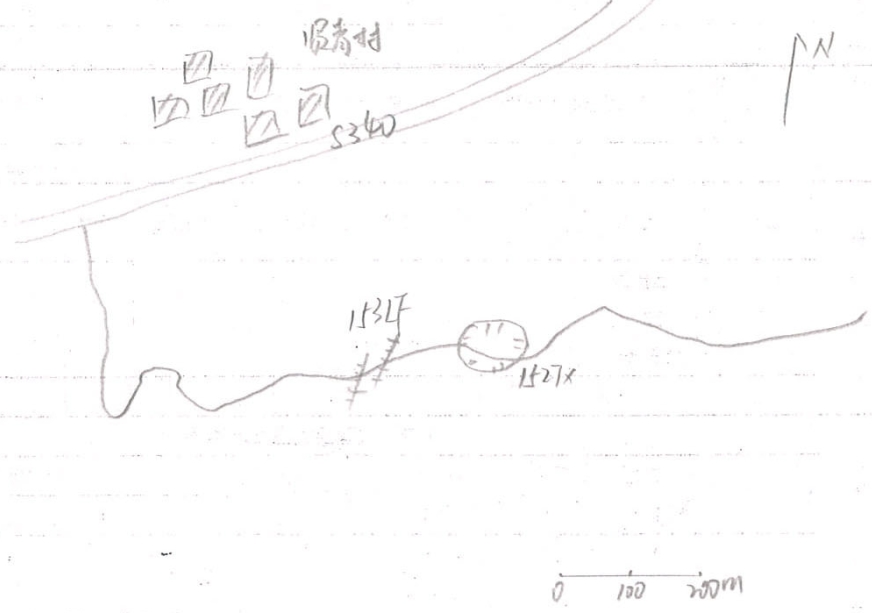 贤寿村
N
S340
1531F
1527x
0 100 200m